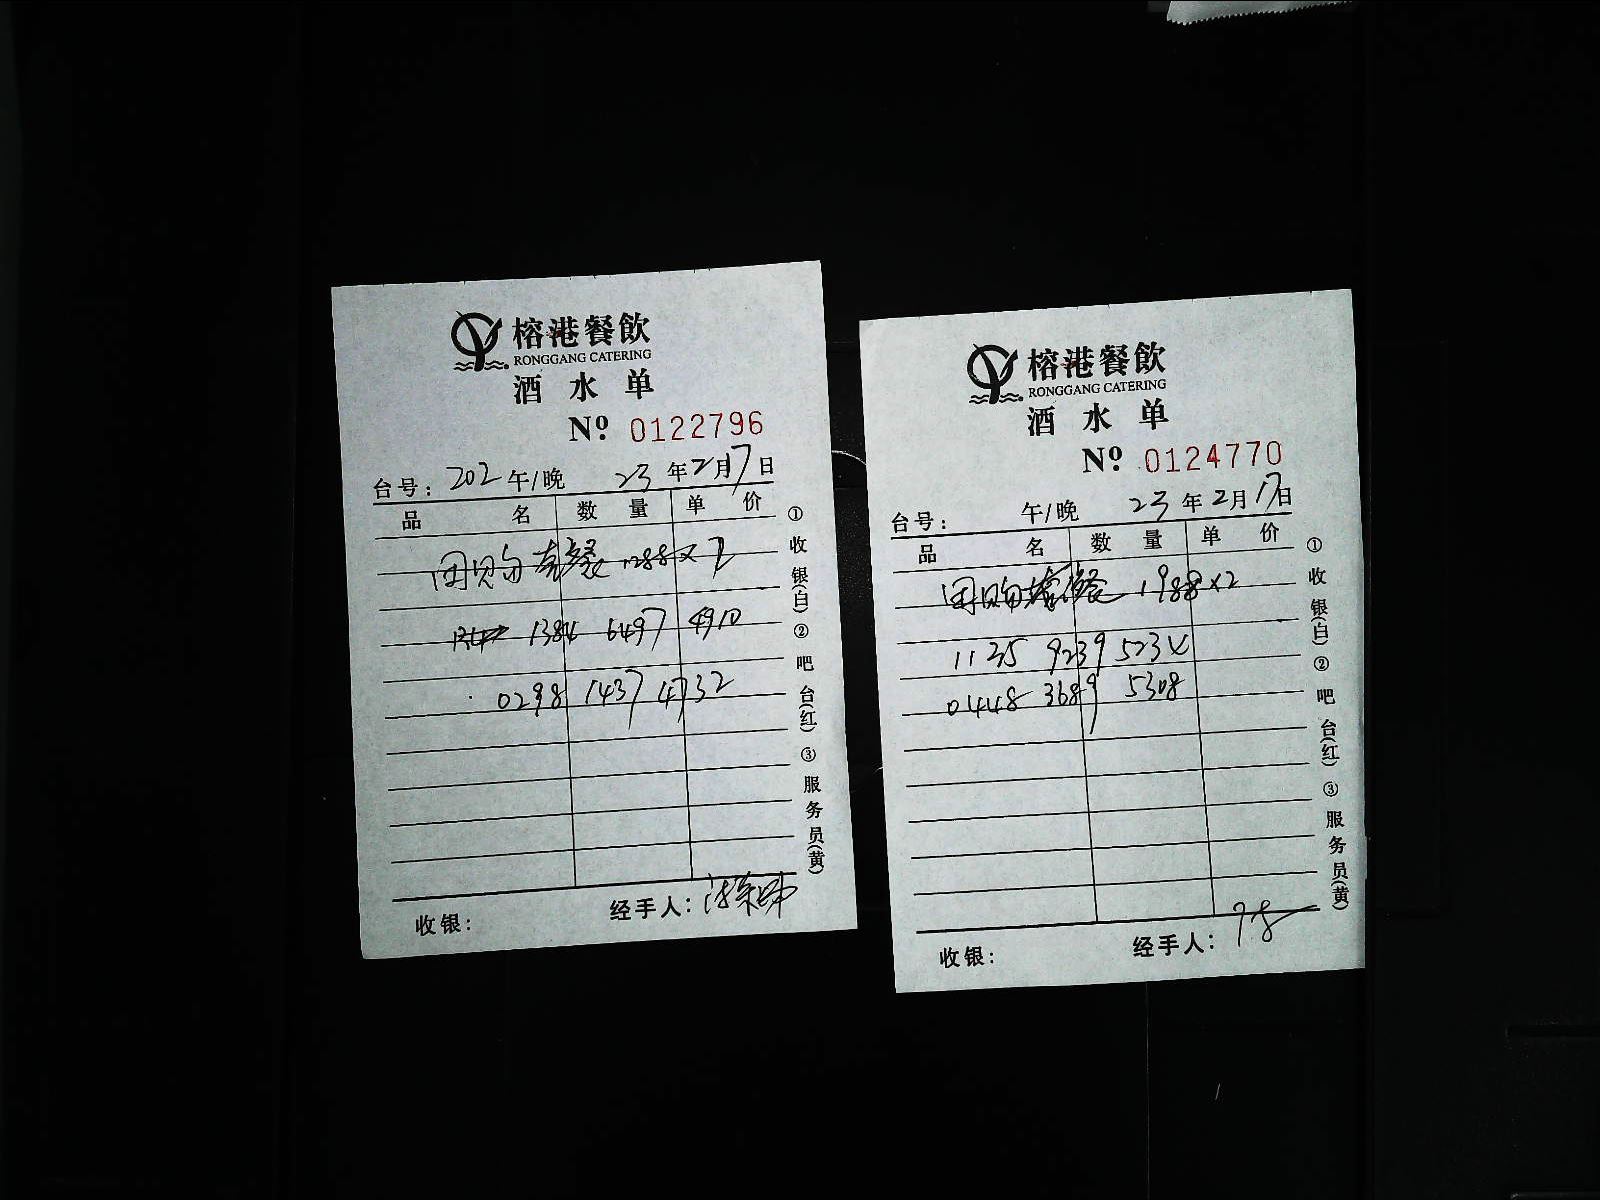 榕港餐飲
RONGGANG CATERING
酒水单
Nº 0122796
台号：202 午/晚 23年2月7日
品名 数量 单价
团购套餐 1288×2
1384 6497 4910
0298 1437 4732
①收银(白)②吧台(红)③服务员(黄)
收银： 经手人：
榕港餐飲
RONGGANG CATERING
酒水单
Nº 0124770
台号： 午/晚 23年2月17日
品名 数量 单价
团购套餐 1988×2
1135 9239 5234
0448 3689 5308
①收银(白)②吧台(红)③服务员(黄)
收银： 经手人：